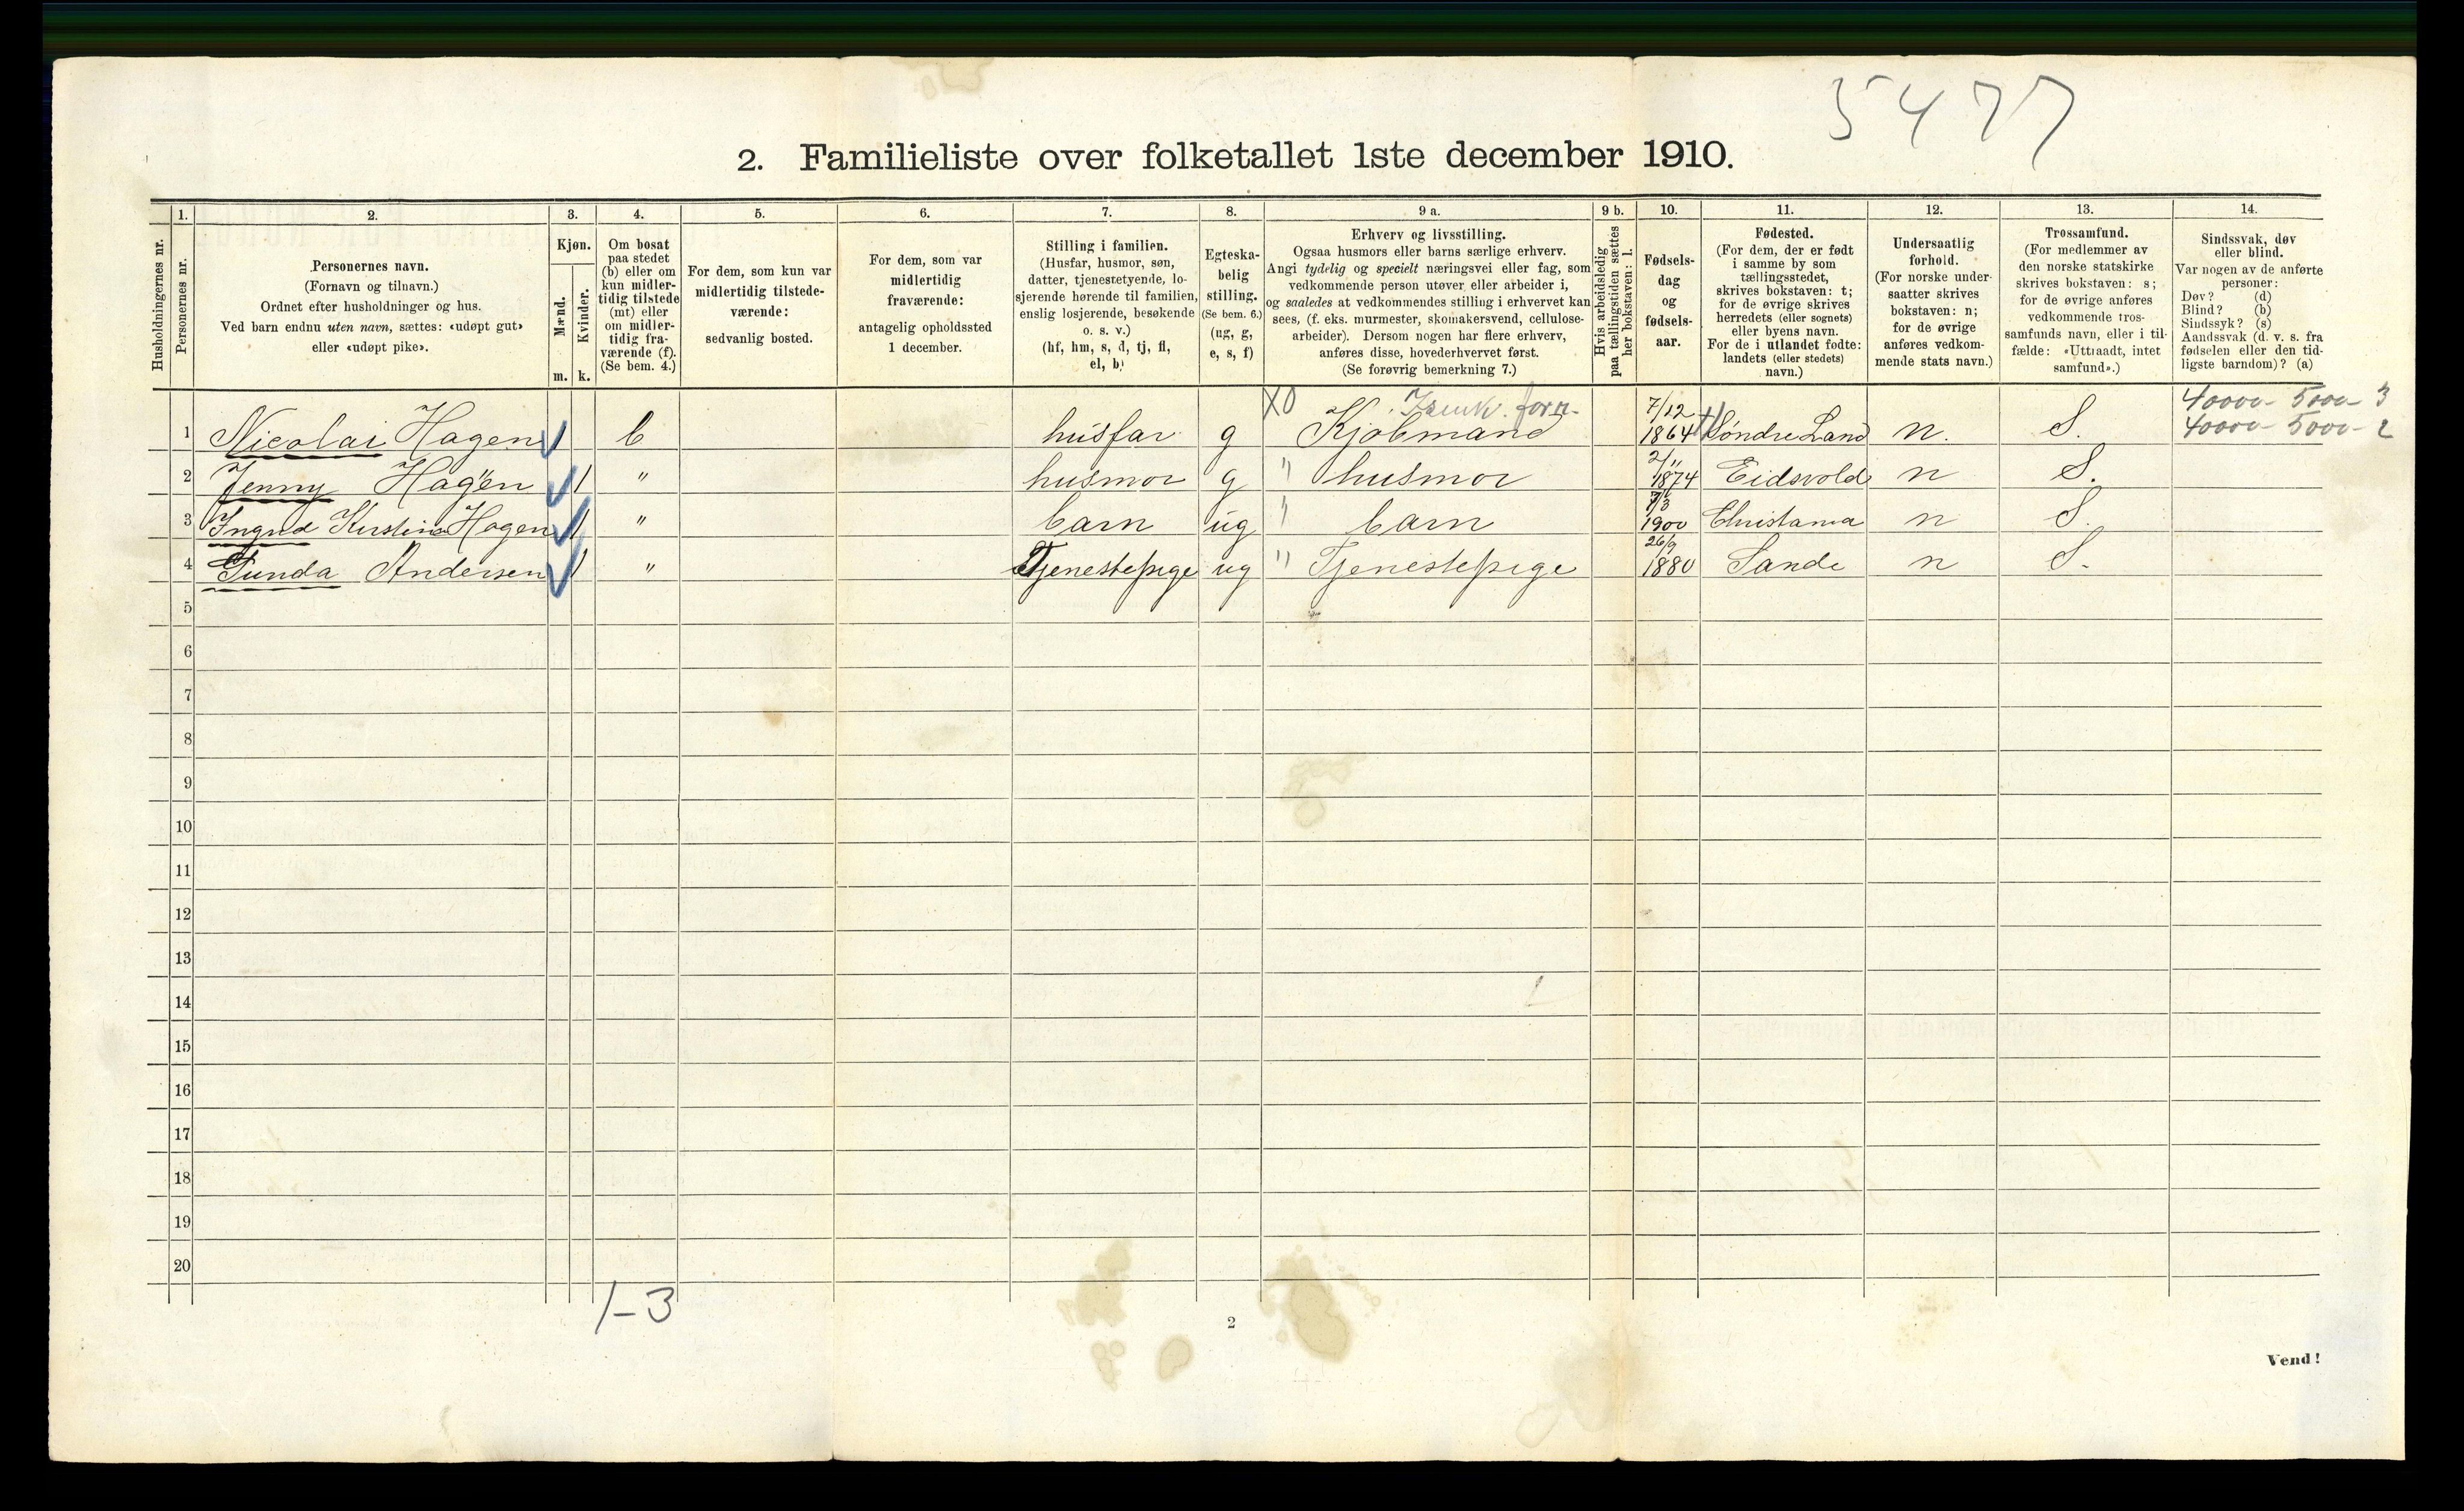 5477
2. Familieliste over folketallet 1ste december 1910.
Husholdningernes nr.
1. Personernes nr.
2. Personernes navn.
(Fornavn og tilnavn.)
Ordnet efter husholdninger og hus.
Ved barn endnu uten navn, sættes: «udøpt gut»
eller «udøpt pike».
3. Kjøn.
Mænd. Kvinder.
m. k.
4. Om bosat
paa stedet
(b) eller om
kun midler-
tidig tilstede
(mt) eller
om midler-
tidig fra-
værende (f).
(Se bem. 4.)
5. For dem, som kun var
midlertidig tilstede-
værende:
sedvanlig bosted.
6. For dem, som var
midlertidig
fraværende:
antagelig opholdssted
1 december.
7. Stilling i familien.
(Husfar, husmor, søn,
datter, tjenestetyende, lo-
sjerende hørende til familien,
enslig losjerende, besøkende
o. s. v.)
(hf, hm, s, d, tj, fl,
el, b)
8. Egteska-
belig
stilling.
(Se bem. 6.)
(ug, g,
e, s, f)
9 a. Erhverv og livsstilling.
Ogsaa husmors eller barns særlige erhverv.
Angi tydelig og specielt næringsvei eller fag, som
vedkommende person utøver eller arbeider i,
og saaledes at vedkommendes stilling i erhvervet kan
sees, (f. eks. murmester, skomakersvend, cellulose-
arbeider). Dersom nogen har flere erhverv,
anføres disse, hovederhvervet først.
(Se forøvrig bemerkning 7.)
9 b. Hvis arbeidsledig
paa tællingstiden sættes
her bokstaven: l.
10. Fødsels-
dag
og
fødsels-
aar.
11. Fødested.
(For dem, der er født
i samme by som
tællingsstedet,
skrives bokstaven: t;
for de øvrige skrives
herredets (eller sognets)
eller byens navn.
For de i utlandet fødte:
landets (eller stedets)
navn.)
12. Undersaatlig
forhold.
(For norske under-
saatter skrives
bokstaven: n;
for de øvrige
anføres vedkom-
mende stats navn.)
13. Trossamfund.
(For medlemmer av
den norske statskirke
skrives bokstaven: s;
for de øvrige anføres
vedkommende tros-
samfunds navn, eller i til-
fælde: «Uttraadt, intet
samfund».)
14. Sindssvak, døv
eller blind.
Var nogen av de anførte
personer:
Døv? (d)
Blind? (b)
Sindssyk? (s)
Aandssvak (d. v. s. fra
fødselen eller den tid-
ligste barndom)? (a)
X0 forr. 7/12 40000- 5000- 3
1 Nicolai Hagen 1 b husfar g Kjøbmand 1864 Søndre Land n. S. 40000- 5000- 2
2 Jenny Hagen 1 " husmor g " husmor 2/11 1874 Eidsvold n S.
3 Ingrid Kirstine Hagen 1 " barn ug " barn 1900 Christania n S.
4 Gunda Andersen 1 " Tjenestepige ug " Tjenestepige 26/9 1880 Sande n S.
5
6
7
8
9
10
11
12
13
14
15
16
17
18
19
20
1-3
2
Vend!